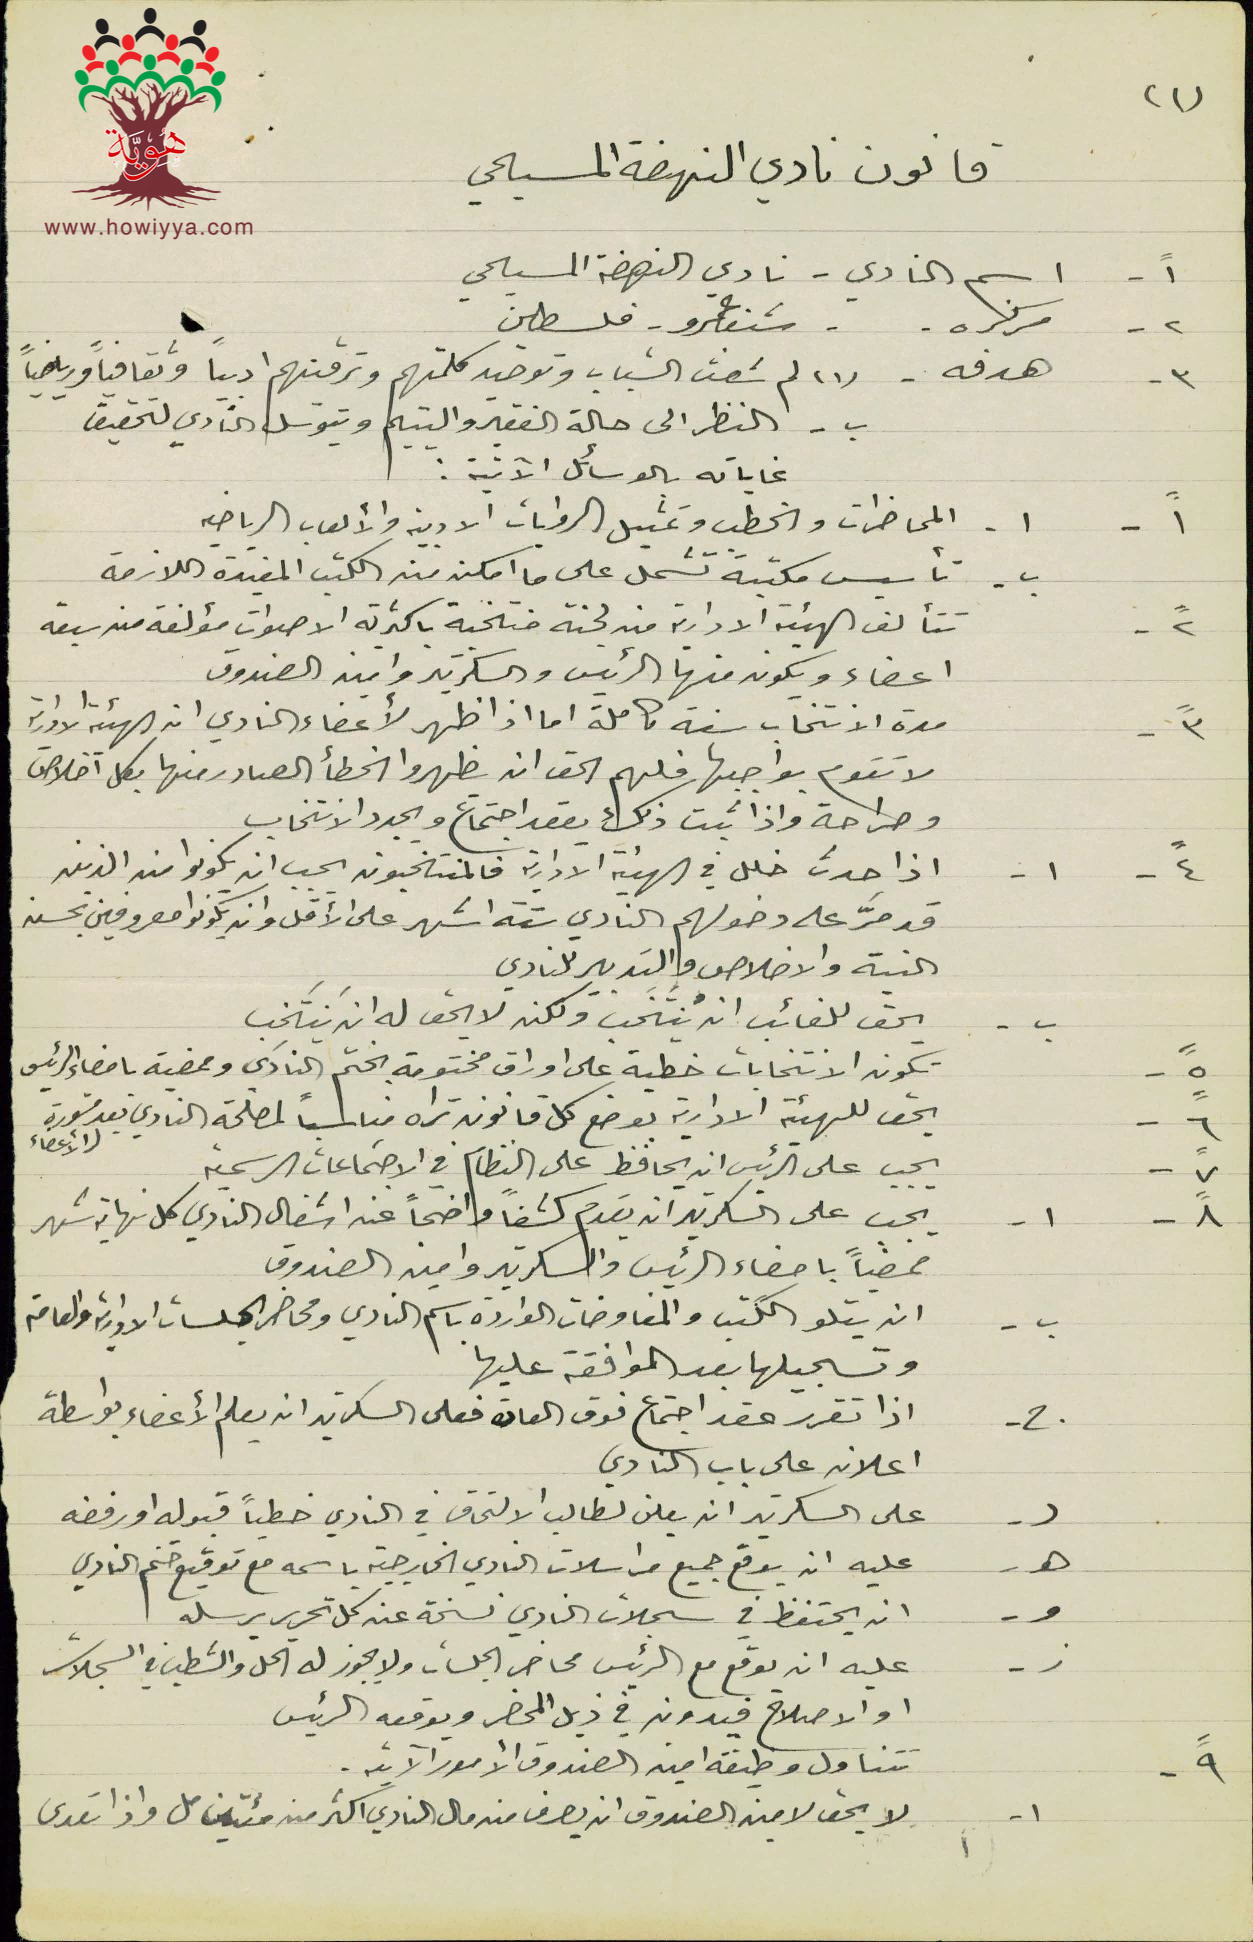 هويّة
www.howiyya.com
(٢)
قانون نادي النهضة المسيحي
١ً - اسم النادي - نادي النهضة المسيحي
٢ - مركزه - - شفاعمرو - فلسطين
٣ - هدفه - (١) لم شعث الشباب وتوحيد كلمتهم وترقيتهم ادبياً وثقافياً ورياضياً
ب - النظر الى حالة الفقير واليتيم ويتوسل النادي لتحقيق
غاياته بالوسائل الآتية :
١ً - ١ - المحاضرات والخطب وتمثيل الروايات الادبية والألعاب الرياضيه
ب - تأسيس مكتبة تشمل على ما امكن من الكتب المفيدة اللازمة
٢ً - تتألف الهيئة الادارية من لجنة منتخبة باكثرية الاصوات مؤلفة من سبعة
اعضاء ويكون منها الرئيس والسكرتير وامين الصندوق
٣ً - مدة الانتخاب سنة كاملة اما اذا ظهر لأعضاء النادي ان الهيئة الادارية
لا تقوم بواجبها فلهم الحق ان يظهروا الخطأ الصادر منها بكل اخلاص
وصراحة واذا ثبت ذلك يعقد اجتماع ويجدد الانتخاب
٤ً - ١ - اذا حدث خلل في الهيئة الادارية فالمنتخبون يجب ان يكونوا من الذين
قد مرَّ على دخولهم النادي ستة اشهر على الأقل وان يكونوا معروفين بحسن
النية والاخلاص والتدبير للنادي
ب - يحق للغائب ان يُنتَخَب ولكن لا يحق له ان يَنتَخب
٥ً - تكون الانتخابات خطية على اوراق مختومة بختم النادي وممضية بامضاء الرئيس
٦ً - يحق للهيئة الادارية بوضع كل قانون تراه مناسباً لمصلحة النادي بعد مشورة
الأعضاء
٧ً - يجب على الرئيس ان يحافظ على النظام في الاجتماعات الرسمية
٨ً - ١ - يجب على السكرتير ان يقدم كشفاً واضحاً عن اشغال النادي كل نهاية شهر
ممضياً بامضاء الرئيس والسكرتير وامين الصندوق
ب - ان يتلو الكتب والمفاوضات الواردة باسم النادي ومحاضر الجلسات الادارية والعامة
وتسجيلها بعد الموافقة عليها
ج - اذا تقرر عقد اجتماع فوق العادة فعلى السكرتير ان يعلم الأعضاء بواسطة
اعلان على باب النادي
د - على السكرتير ان يعلن لطالب الالتحاق في النادي خطياً قبوله او رفضه
هـ - عليه ان يوقع جميع مراسلات النادي الخارجية باسمه مع توقيع ختم النادي
و - ان يحتفظ في سجلات النادي نسخة عن كل تحرير يرسله
ز - عليه ان يوقع مع الرئيس محاضر الجلسات ولا يجوز له الحك والشطب في السجلات
او الاصلاح فيدون في ذيل المحضر ويوقعه الرئيس
٩ً - تتناول وظيفة امين الصندوق الأمور الآتية -
١ - لا يحق لامين الصندوق ان يصرف من مال النادي اكثر من مئتين مل واذا تعدى